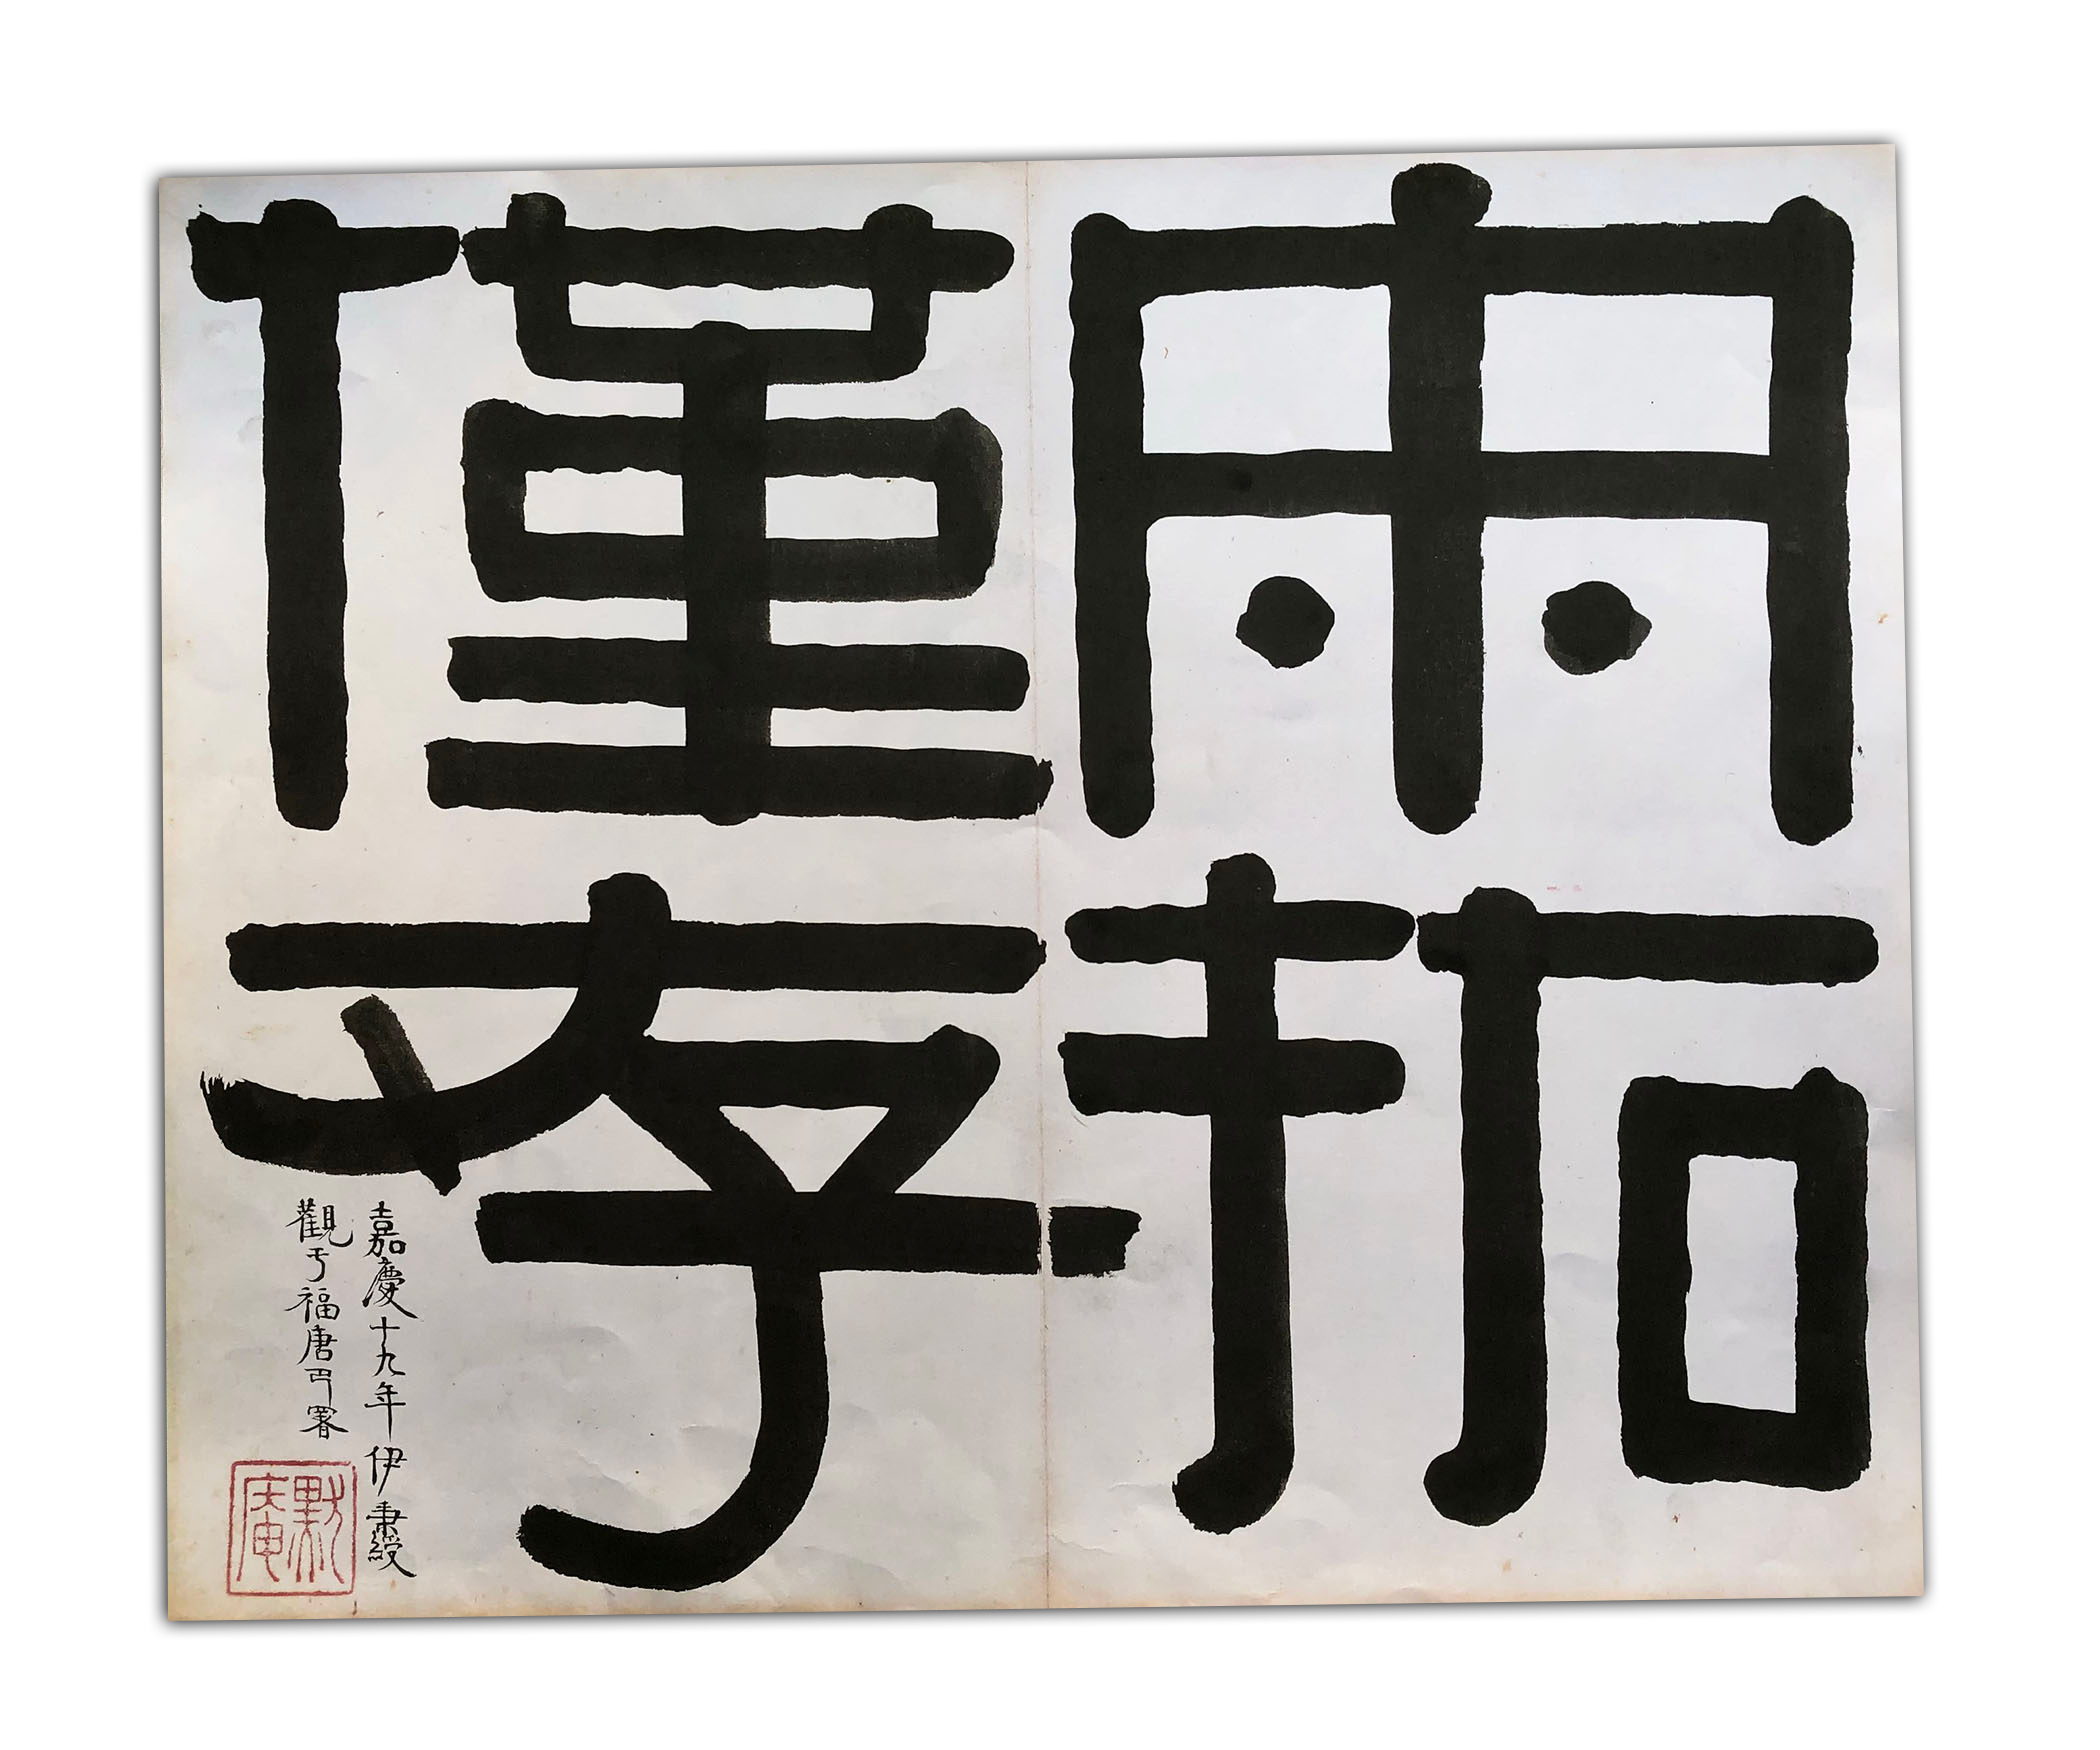 兩拓
僅存
嘉慶十九年伊秉綬
觀于福唐署
默庵